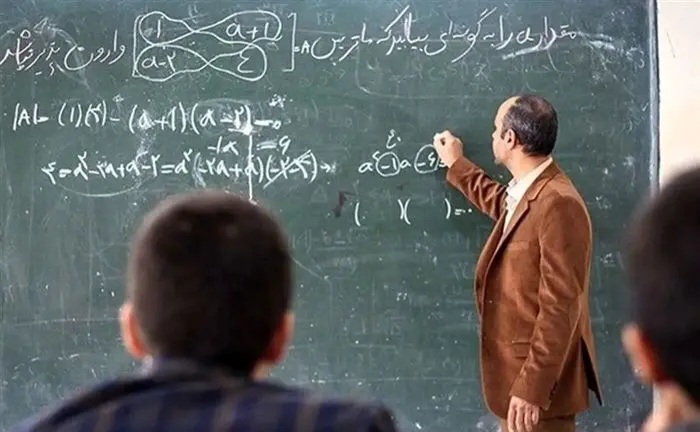 مقدار a را به گونه‌ای بیابید که ماتریس A = [1 a+1 a-2 4] وارون پذیر نباشد
|A| = (1)(4) - (a+1)(a-2) = 0
4 = a² - 2a + a - 2 = a² (-2a + a)(-2-4) →
a² -1 a -6 =
( )( ) = 0